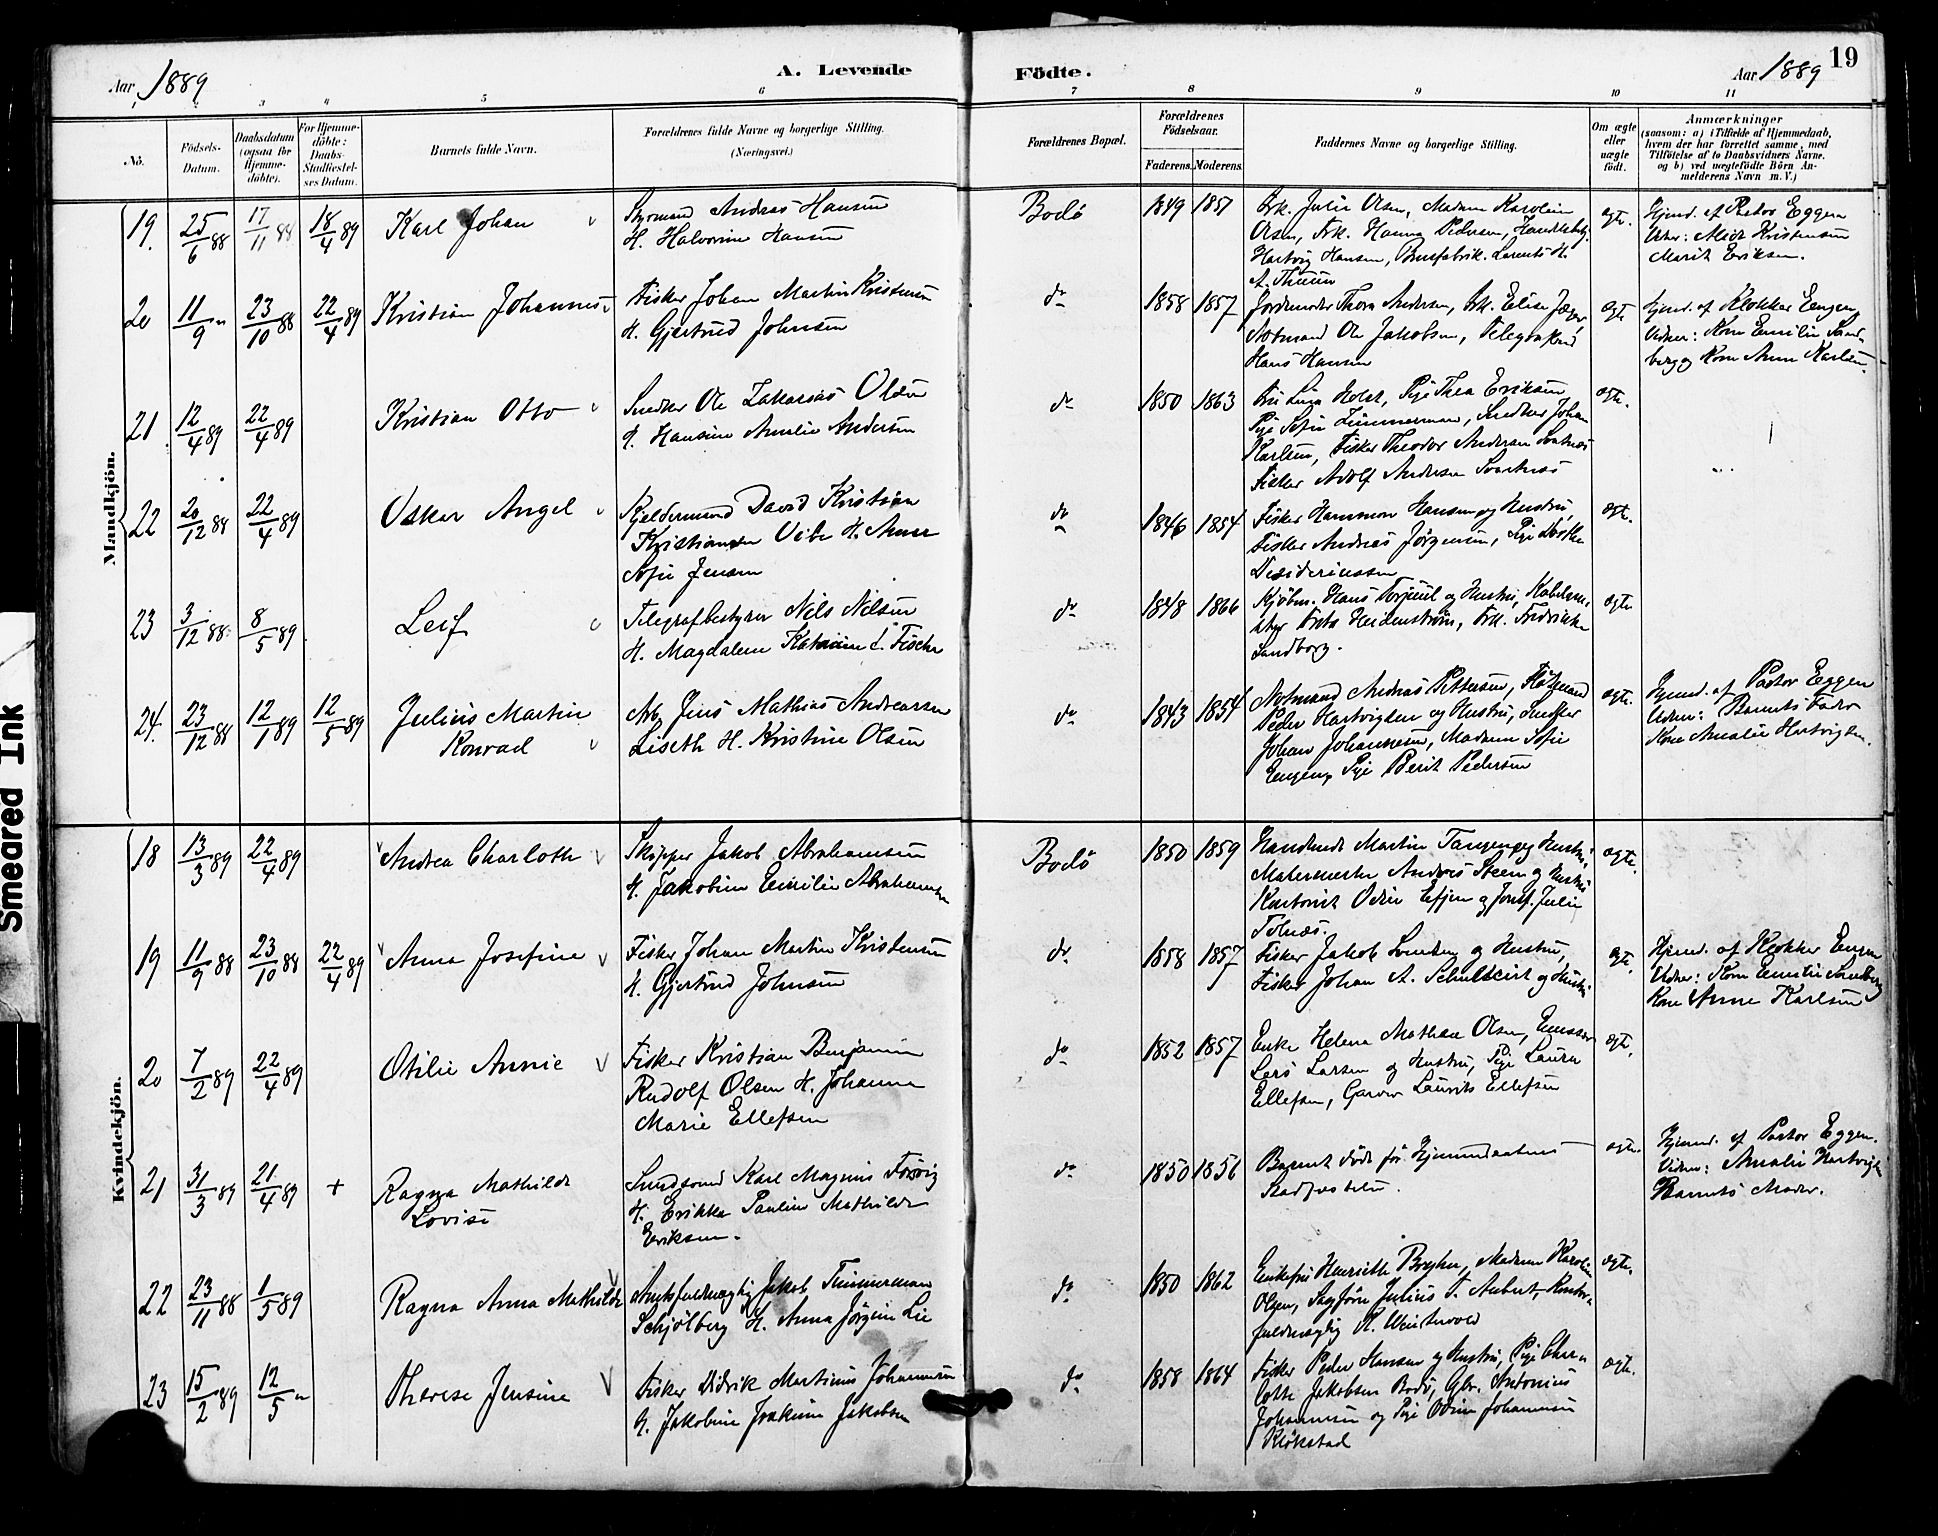 Aar 1889
A. Levende
Födte.
Aar 1889
19
3 4 5 6 7 8 9 10 11
No.
Födsels-
Datum.
Daabsdatum
(ogsaa for
Hjemme-
döbte).
For Hjemme-
döbte:
Daabs-
Stadfæstel-
ses Datum.
Barnets fulde Navn.
Forældrenes fulde Navne og borgerlige Stilling.
(Næringsvei.)
Forældrenes Bopæl.
Forældrenes
Födselsaar.
Faderens. Moderens.
Faddernes Navne og borgerlige Stilling.
Om ægte
eller
uægte
födt.
Anmærkninger
(saasom: a) i Tilfælde af Hjemmedaab,
hvem der har forrettet samme, med
Tilföielse af to Daabsvidners Navne.
og b) ved uegtefödte Börn An-
melderens Navn m. V.)
Mandkjön.
19. 25/6 88 17/11 88 18/4 89 Karl Johan
Styrmand Andreas Hansen
H. Halvorine Hansen
Bodö 1849 1851
Frk. Julie Olsen, Madam Karoline
Olsen, Frk. Hanna Pedersen, Handelsbetj.
Hartvig Hansen, Brusfabrik. Lorents H.
A. Thuun
ægte.
Hjemd. af Pastor Eggen
Vidner: Kristensen
Marit Eriksen.
20 11/9 " 23/10 88 22/4 89 Kristian Johannes
Fisker Johan Martin Kristensen
H. Gjertrud Johnsen
do 1858 1857
Jordemoder Thora Andersen, Frk. Elise Jæger,
Notmand Ole Jakobsen,
Hans Hansen
ægte
Hjemd. af Klokker Engen,
Vidner: Kone Emilie Sand-
berg og Kone Anne Karlsen.
21 12/4 89 22/4 89 Kristian Otto
Snedker Ole Zakarias Olsen
H. Hansine Amalie Andersen
do 1850 1863
Fru Lina Holst, Pige Thea Eriksen
Pige Sofie Zimmerman, Snedker Johan
Karlsen, Fisker Theodor Andersen Svartnes
Fisker Adolf Andersen Svartnes
ægte.
22 20/12 88 22/4 89 Oskar Angel
Kjeldermand David Kristian
Kristiansen Vibe H. Anna
Sofie Jensen
do 1846 1854
Fisker Hammon Hansen og Hustru,
Fisker Andreas Jörgensen, Pige
Desideriussen
ægte.
23 3/12 88 8/5 89 Leif
Telegrafbestyrer Nils Nilsen
H. Magdalene Katrine L. Fischer
do 1848 1866
Kjöbm. Hans Torjuul og Hustru,
Heidenström, Frk. Fredrikke
Sandborg.
ægte
24. 23/12 88 12/1 89 12/5 89 Julius Martin
Konrad
Arb. Jens Mathias Andreassen
Liseth H. Kristine Olsen
do 1843 1854
Notmand Andreas Pettersen,
Peder Hartvigsen og Hustru, Snedker
Johan Johannesen, Madam Sofie
Engeng, Pige Berit Pedersen
ægte.
Hjemd. af Pastor Eggen
Vidner: Barnets Fader
Kone Amalie Hartvigsen.
Kvindekjön.
18 13/3 89 22/4 89 Andrea Charlothe
Skipper Jakob Abrahamsen
H. Jakobine Emilie Abrahamsen
Bodö 1850 1859
Handlende Martin Tangen og Hustru,
Malermester Andreas Steen og Hustru
Kontorist Odin Efjen og Jomf. Julie
Tolnæs.
ægte.
19 11/9 88 23/10 88 22/4 89 Anna Josefine
Fisker Johan Martin Kristensen
H. Gjertrud Johnsen
do 1858 1857
Fisker Jakob og Hustru,
Fisker Johan A. Schultzeist og Hustru
ægte.
Hjemd. af Klokker Engen
Vidner: Kone Emilie Sandberg
Kone Anne Karlsen
20 7/2 89 22/4 89 Otilie Annie
Fisker Kristian Benjamin
Rudolf Olsen H. Johanna
Marie Ellefsen
do 1852 1857
Enke Helena Mathea Olsen,
Lars Larsen og Hustru, Pige Laura
Ellefsen, Garver Laurits Ellefsen
ægte.
21 31/3 89 21/4 89 + Ragna Mathilde
Lovise
Karl Magnus
H. Erikka Pauline Mathilde
Eriksen.
do 1850 1856
Barnet döde för Hjemmedaabens
Stadfæstelse.
ægte.
Hjemd. af Pastor Eggen.
Vidner: Amalie Hartvigsen
Barnets Moder.
22 23/11 88 1/5 89 Ragna Anna Mathilde
Amtsfuldmægtig Jakob Timmerman
Schjölberg H. Anna Jörgine Lie
do 1850 1862
Enkefru Henriette Madam Karoline
Olsen, Sagförer Julius T. Aubert, Kontor-
fuldmægtig R.
ægte.
23 15/2 89 12/5 " Therese Jensine
Fisker Didrik Martinus Johannesen
H. Jakobine Joakime Jakobsen
do 1858 1864
Fisker Peder Hansen og Hustru, Pige Char-
lotte Jakobsen Bodö, Gbr. Antonius
Johannesen og Pige Odine Johannesen
Klökstad
ægte.
Smeared Ink